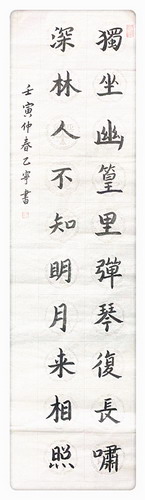 獨坐幽篁里彈琴復長嘯
深林人不知明月来相照
壬寅仲春乙寧書